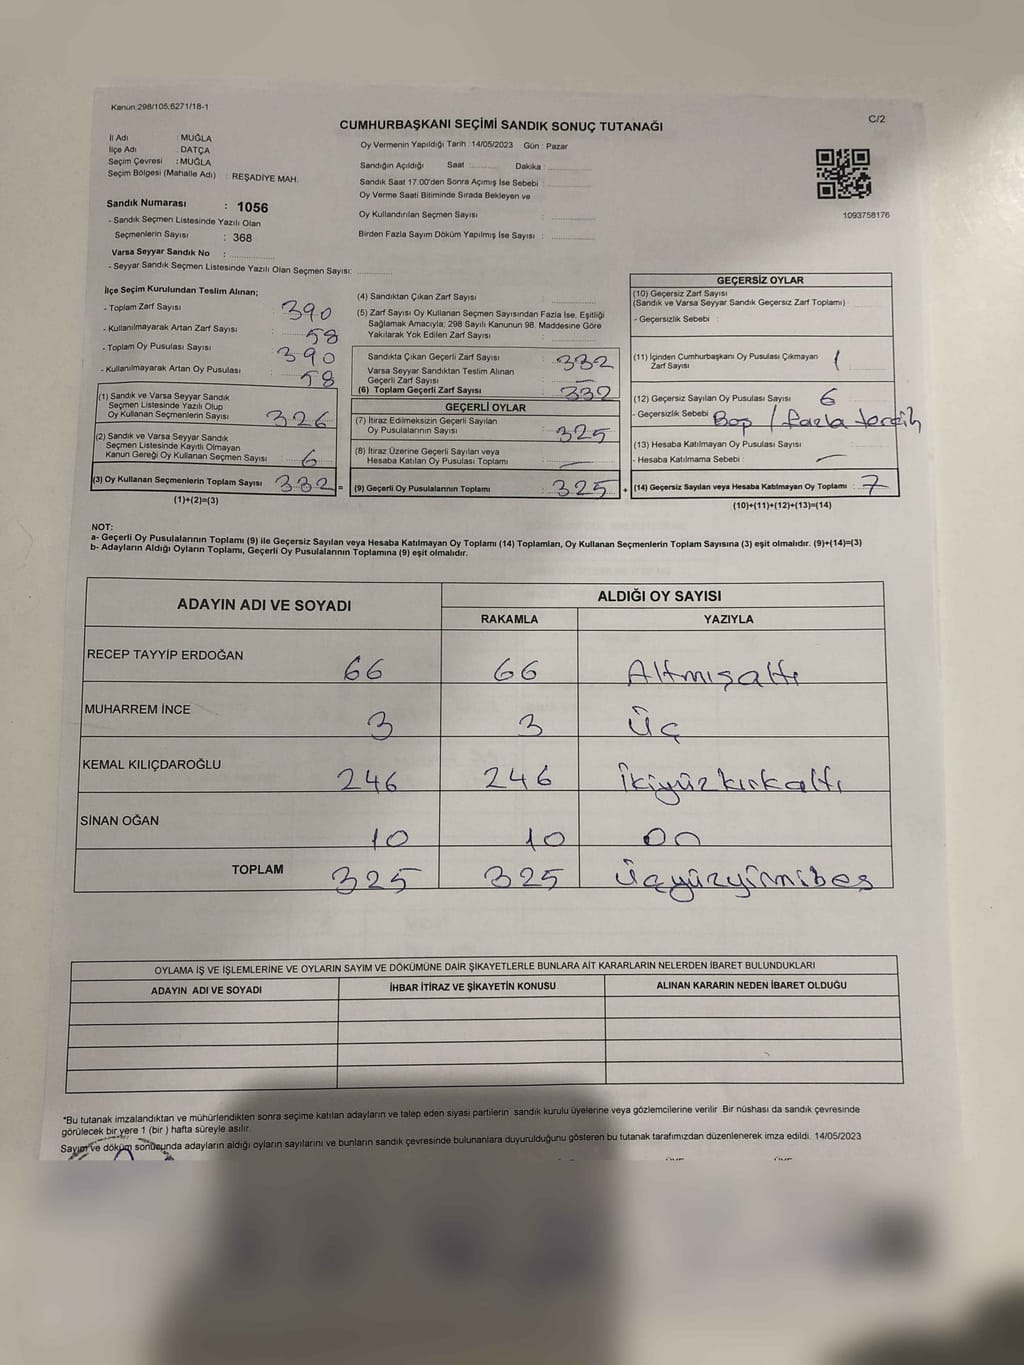 Kanun:298/105,6271/18-1
C/2
CUMHURBAŞKANI SEÇİMİ SANDIK SONUÇ TUTANAĞI
İl Adı : MUĞLA
İlçe Adı : DATÇA
Seçim Çevresi : MUĞLA
Seçim Bölgesi (Mahalle Adı) : REŞADİYE MAH.
Sandık Numarası : 1056
- Sandık Seçmen Listesinde Yazılı Olan
Seçmenlerin Sayısı : 368
Varsa Seyyar Sandık No :
- Seyyar Sandık Seçmen Listesinde Yazılı Olan Seçmen Sayısı:
Oy Vermenin Yapıldığı Tarih : 14/05/2023 Gün : Pazar
Sandığın Açıldığı Saat : Dakika :
Sandık Saat 17:00'den Sonra Açımış İse Sebebi :
Oy Verme Saati Bitiminde Sırada Bekleyen ve
Oy Kullandırılan Seçmen Sayısı :
Birden Fazla Sayım Döküm Yapılmış İse Sayısı :
1093758176
İlçe Seçim Kurulundan Teslim Alınan;
- Toplam Zarf Sayısı : 390
- Kullanılmayarak Artan Zarf Sayısı : 58
- Toplam Oy Pusulası Sayısı : 390
- Kullanılmayarak Artan Oy Pusulası : 58
(1) Sandık ve Varsa Seyyar Sandık
Seçmen Listesinde Yazılı Olup
Oy Kullanan Seçmenlerin Sayısı : 326
(2) Sandık ve Varsa Seyyar Sandık
Seçmen Listesinde Kayıtlı Olmayan
Kanun Gereği Oy Kullanan Seçmen Sayısı : 6
(3) Oy Kullanan Seçmenlerin Toplam Sayısı : 332 =
(1)+(2)=(3)
(4) Sandıktan Çıkan Zarf Sayısı :
(5) Zarf Sayısı Oy Kullanan Seçmen Sayısından Fazla İse, Eşitliği
Sağlamak Amacıyla; 298 Sayılı Kanunun 98. Maddesine Göre
Yakılarak Yok Edilen Zarf Sayısı :
Sandıkta Çıkan Geçerli Zarf Sayısı : 332
Varsa Seyyar Sandıktan Teslim Alınan
Geçerli Zarf Sayısı : —
(6) Toplam Geçerli Zarf Sayısı : 332
GEÇERLİ OYLAR
(7) İtiraz Edimeksizin Geçerli Sayılan
Oy Pusulalarının Sayısı : 325
(8) İtiraz Üzerine Geçerli Sayılan veya
Hesaba Katılan Oy Pusulası Toplamı : —
(9) Geçerli Oy Pusulalarının Toplamı : 325 +
GEÇERSİZ OYLAR
(10) Geçersiz Zarf Sayısı
(Sandık ve Varsa Seyyar Sandık Geçersiz Zarf Toplamı) :
- Geçersizlik Sebebi :
(11) İçinden Cumhurbaşkanı Oy Pusulası Çıkmayan
Zarf Sayısı : 1
(12) Geçersiz Sayılan Oy Pusulası Sayısı : 6
- Geçersizlik Sebebi : Boş / fazla tercih
(13) Hesaba Katılmayan Oy Pusulası Sayısı :
- Hesaba Katılmama Sebebi : —
(14) Geçersiz Sayılan veya Hesaba Katılmayan Oy Toplamı : 7
(10)+(11)+(12)+(13)=(14)
NOT:
a- Geçerli Oy Pusulalarının Toplamı (9) ile Geçersiz Sayılan veya Hesaba Katılmayan Oy Toplamı (14) Toplamları, Oy Kullanan Seçmenlerin Toplam Sayısına (3) eşit olmalıdır. (9)+(14)=(3)
b- Adayların Aldığı Oyların Toplamı, Geçerli Oy Pusulalarının Toplamına (9) eşit olmalıdır.
ADAYIN ADI VE SOYADI
ALDIĞI OY SAYISI
RAKAMLA YAZIYLA
RECEP TAYYİP ERDOĞAN 66 66 Altmışaltı
MUHARREM İNCE 3 3 Üç
KEMAL KILIÇDAROĞLU 246 246 İkiyüzkırkaltı
SİNAN OĞAN 10 10 On
TOPLAM 325 325 Üçyüzyirmibeş
OYLAMA İŞ VE İŞLEMLERİNE VE OYLARIN SAYIM VE DÖKÜMÜNE DAİR ŞİKAYETLERLE BUNLARA AİT KARARLARIN NELERDEN İBARET BULUNDUKLARI
ADAYIN ADI VE SOYADI İHBAR İTİRAZ VE ŞİKAYETİN KONUSU ALINAN KARARIN NEDEN İBARET OLDUĞU
*Bu tutanak imzalandıktan ve mühürlendikten sonra seçime katılan adayların ve talep eden siyasi partilerin sandık kurulu üyelerine veya gözlemcilerine verilir .Bir nüshası da sandık çevresinde
görülecek bir yere 1 (bir ) hafta süreyle asılır.
Sayım ve döküm sonucunda adayların aldığı oyların sayılarını ve bunların sandık çevresinde bulunanlara duyurulduğunu gösteren bu tutanak tarafımızdan düzenlenerek imza edildi. 14/05/2023